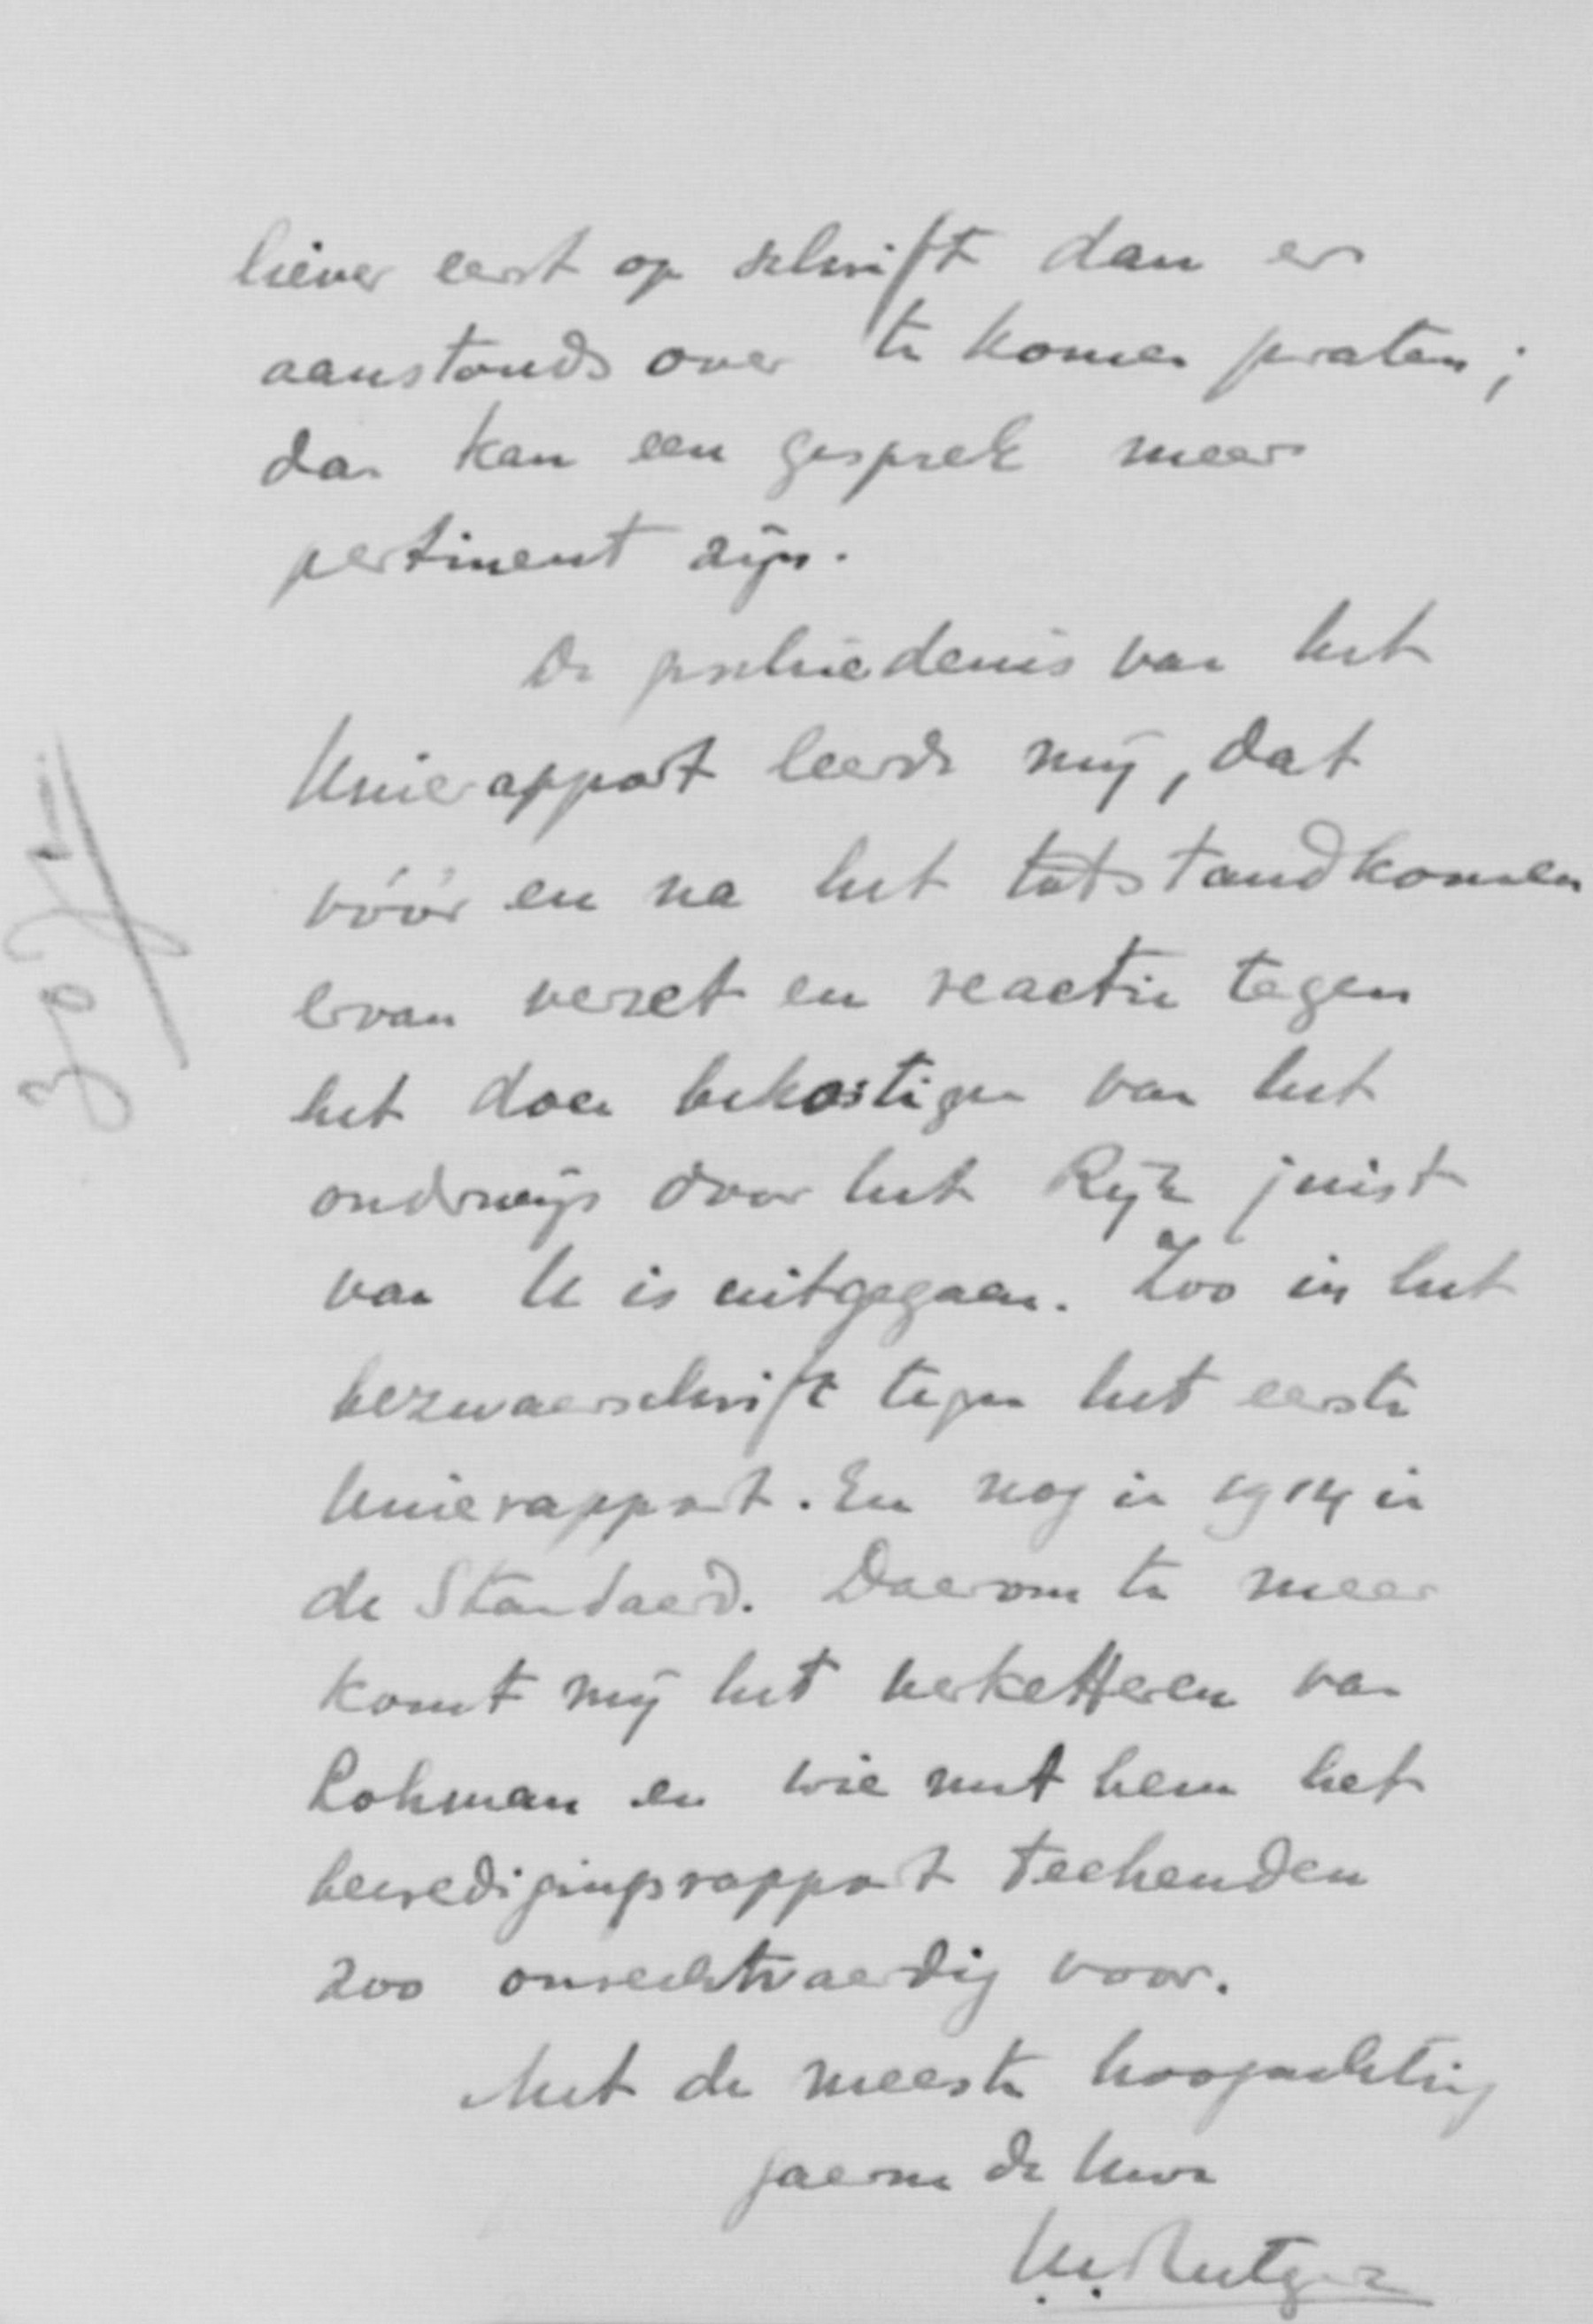 liever eerst op schrift dan er
aanstonds over te komen praten;
dan kan een gesprek meer
pertinent zijn.
De geschiedenis van het
Unierapport leerde mij, dat
vóór en na het totstandkomen
ervan verzet en reactie tegen
het doen bekostigen van het
onderwijs door het Rijk juist
van U is uitgegaan. Zoo in het
bezwaarschrift tegen het eerste
Unierapport. En nog in 1914 in
de Standaard. Daarom te meer
komt mij het verketteren van
Lohman en wie met hem het
bevredigingsrapport teekenden
zoo onrechtvaardig voor.
Met de meeste hoogachting
gaarne de Uwe
Rutgers